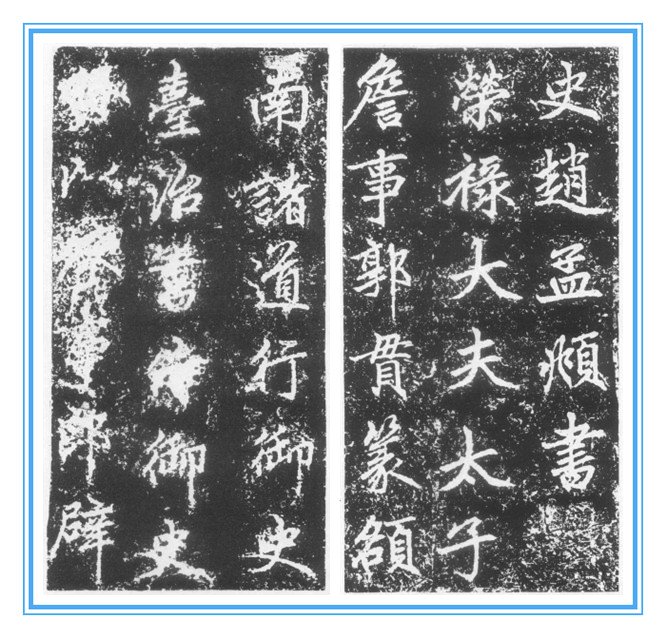 史趙孟頫書
榮祿大夫太子
詹事郭貫篆額
南諸道行御史
臺治書侍御史
以郎辟